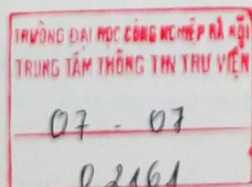 TRƯỜNG ĐẠI HỌC CÔNG NGHIỆP HÀ NỘI
TRUNG TÂM THÔNG TIN THƯ VIỆN
07 - 07
02161